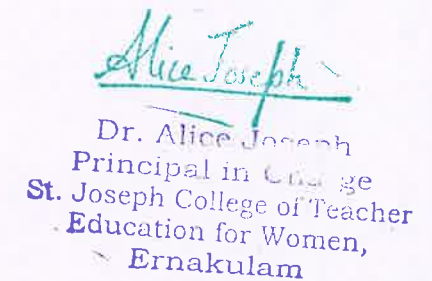 Alice Joseph
Dr. Alice Joseph
Principal in
St. Joseph College of Teacher
Education for Women,
Ernakulam